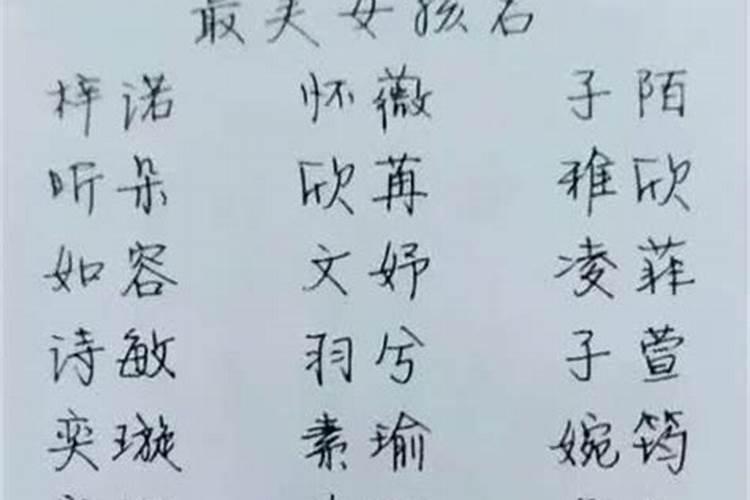 最美女孩名
梓诺 怀薇 子陌
听朵 欣苒 雅欣
如容 文妤 凌菲
诗敏 羽兮 子萱
奕璇 素瑜 婉筠